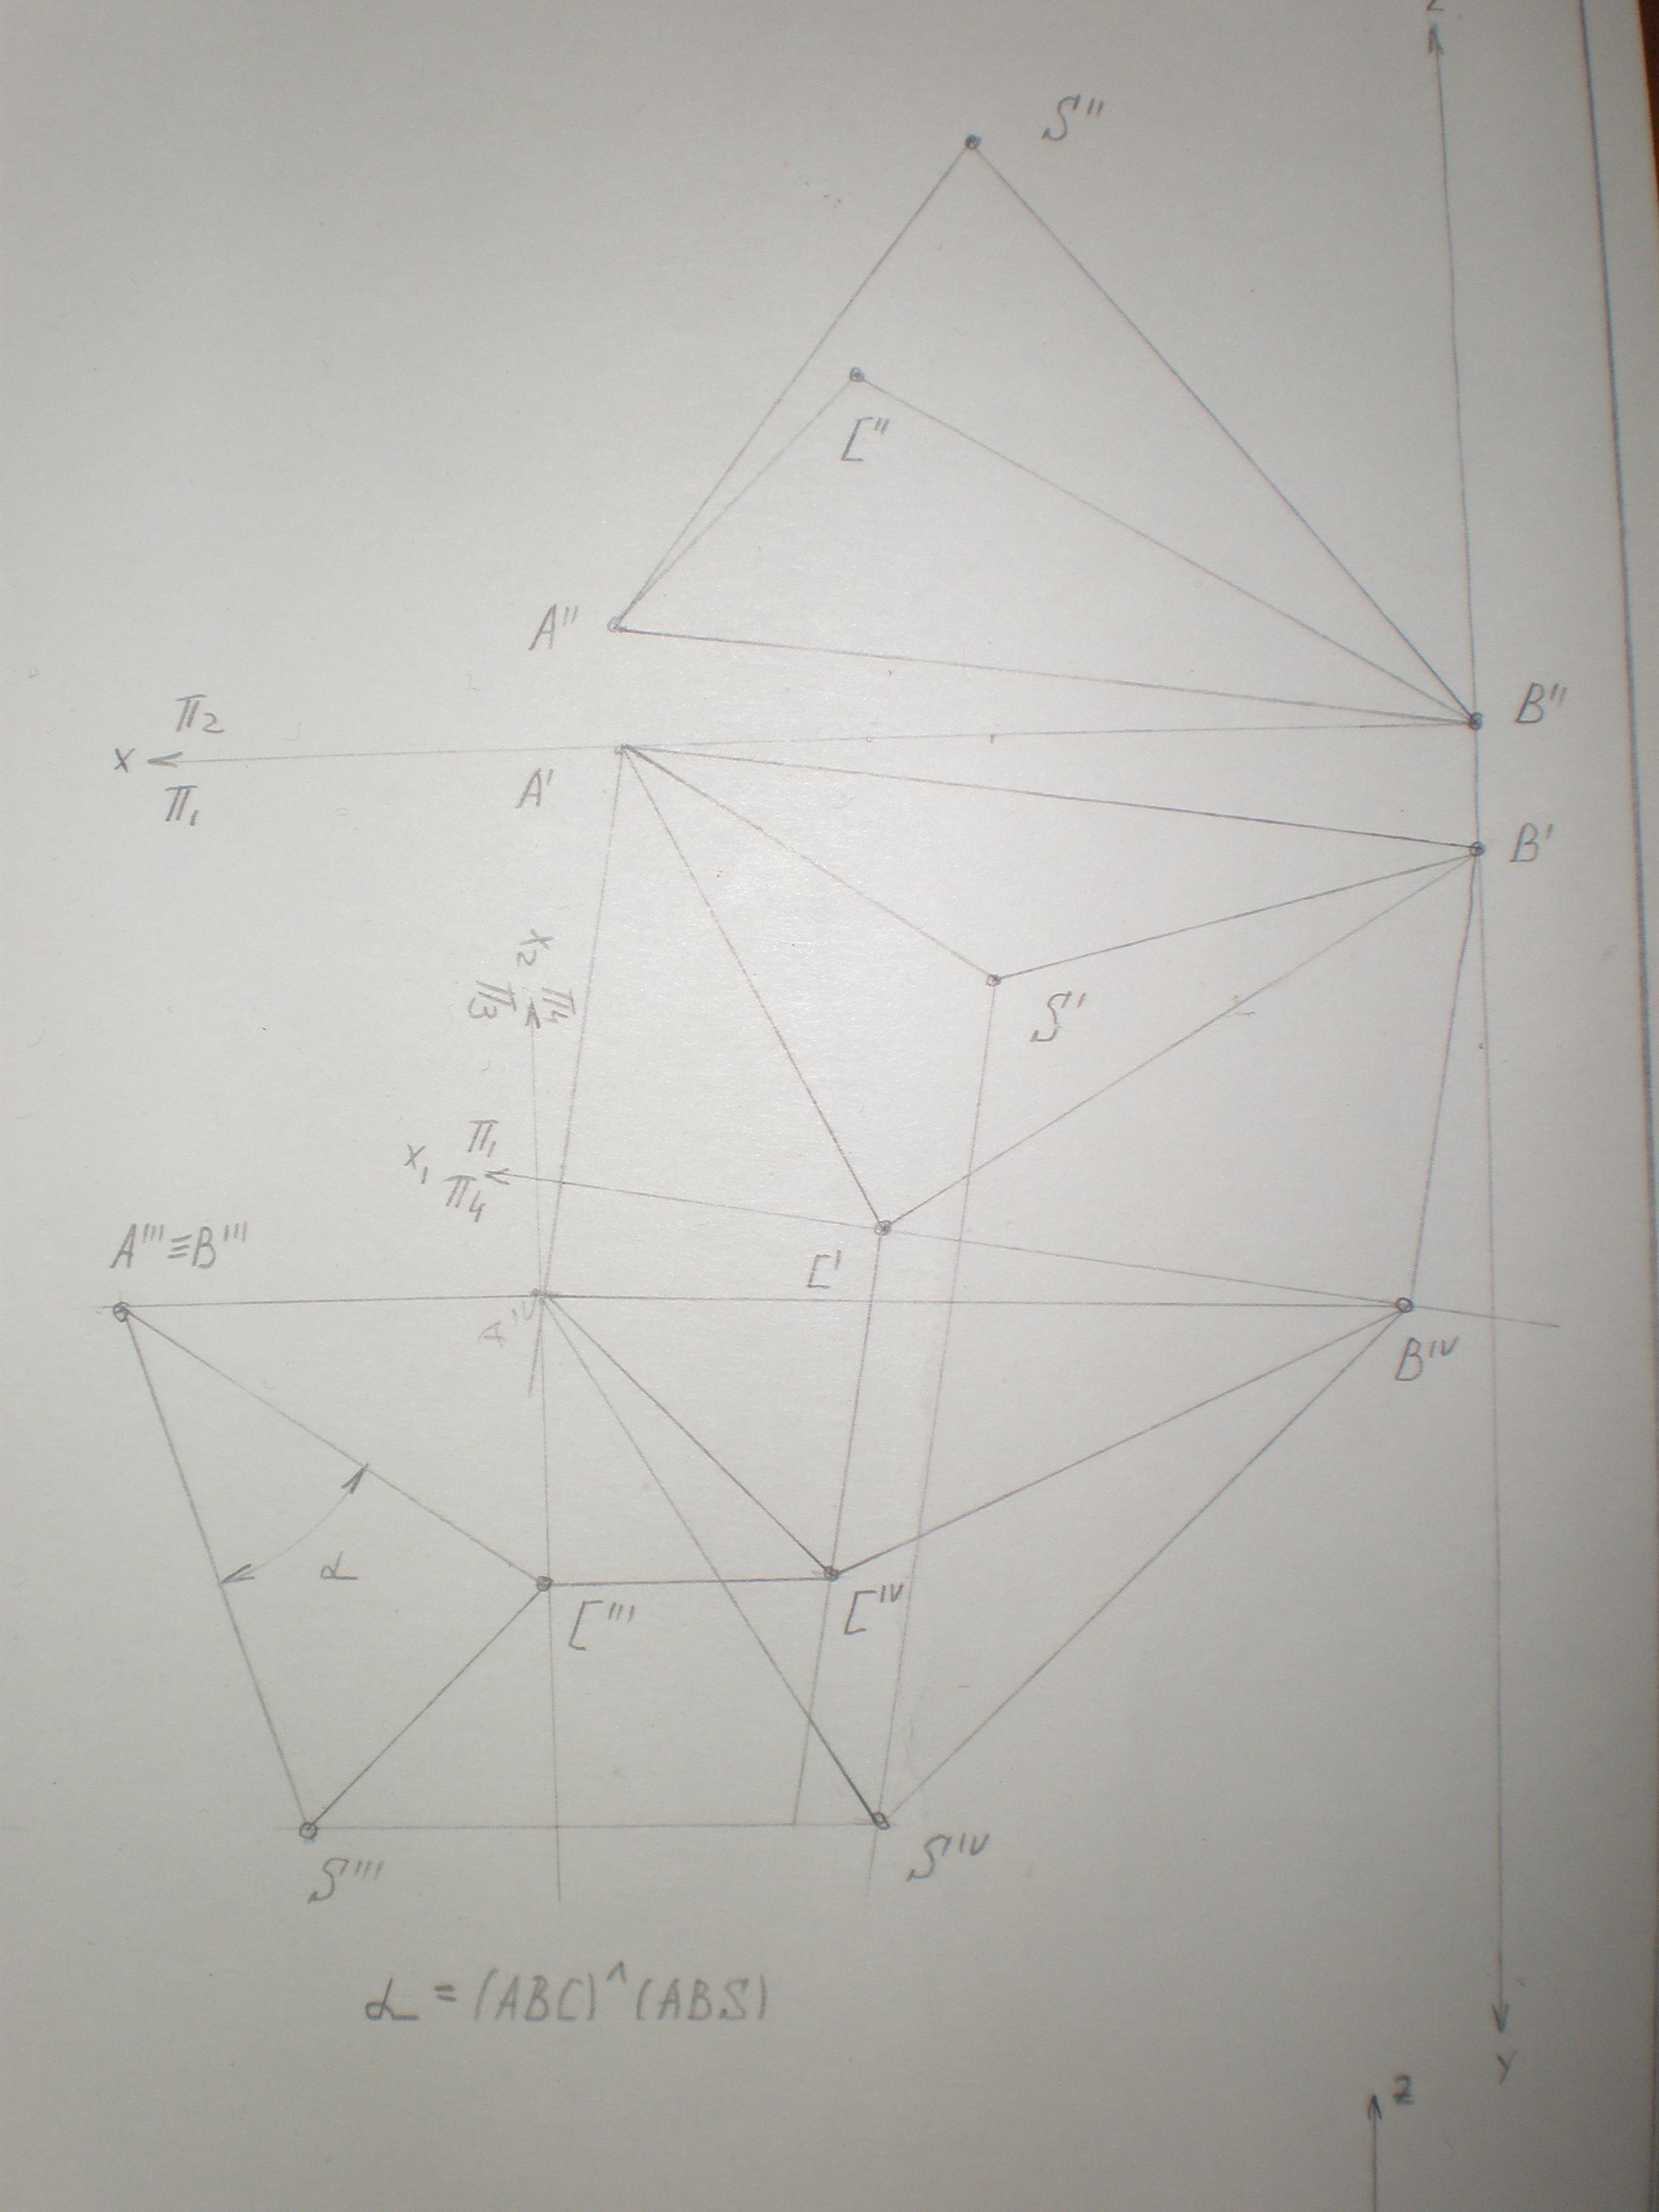 Z
S''
C''
A''
B''
π₂
x
π₁
A'
B'
x₂
π₃ π₄
S'
π₁
x₁
π₄
A'''≡B'''
C'
A'ⱽ
B'ⱽ
α
C'''
C'ⱽ
S'''
S'ⱽ
α = (ABC)^(ABS)
y
z